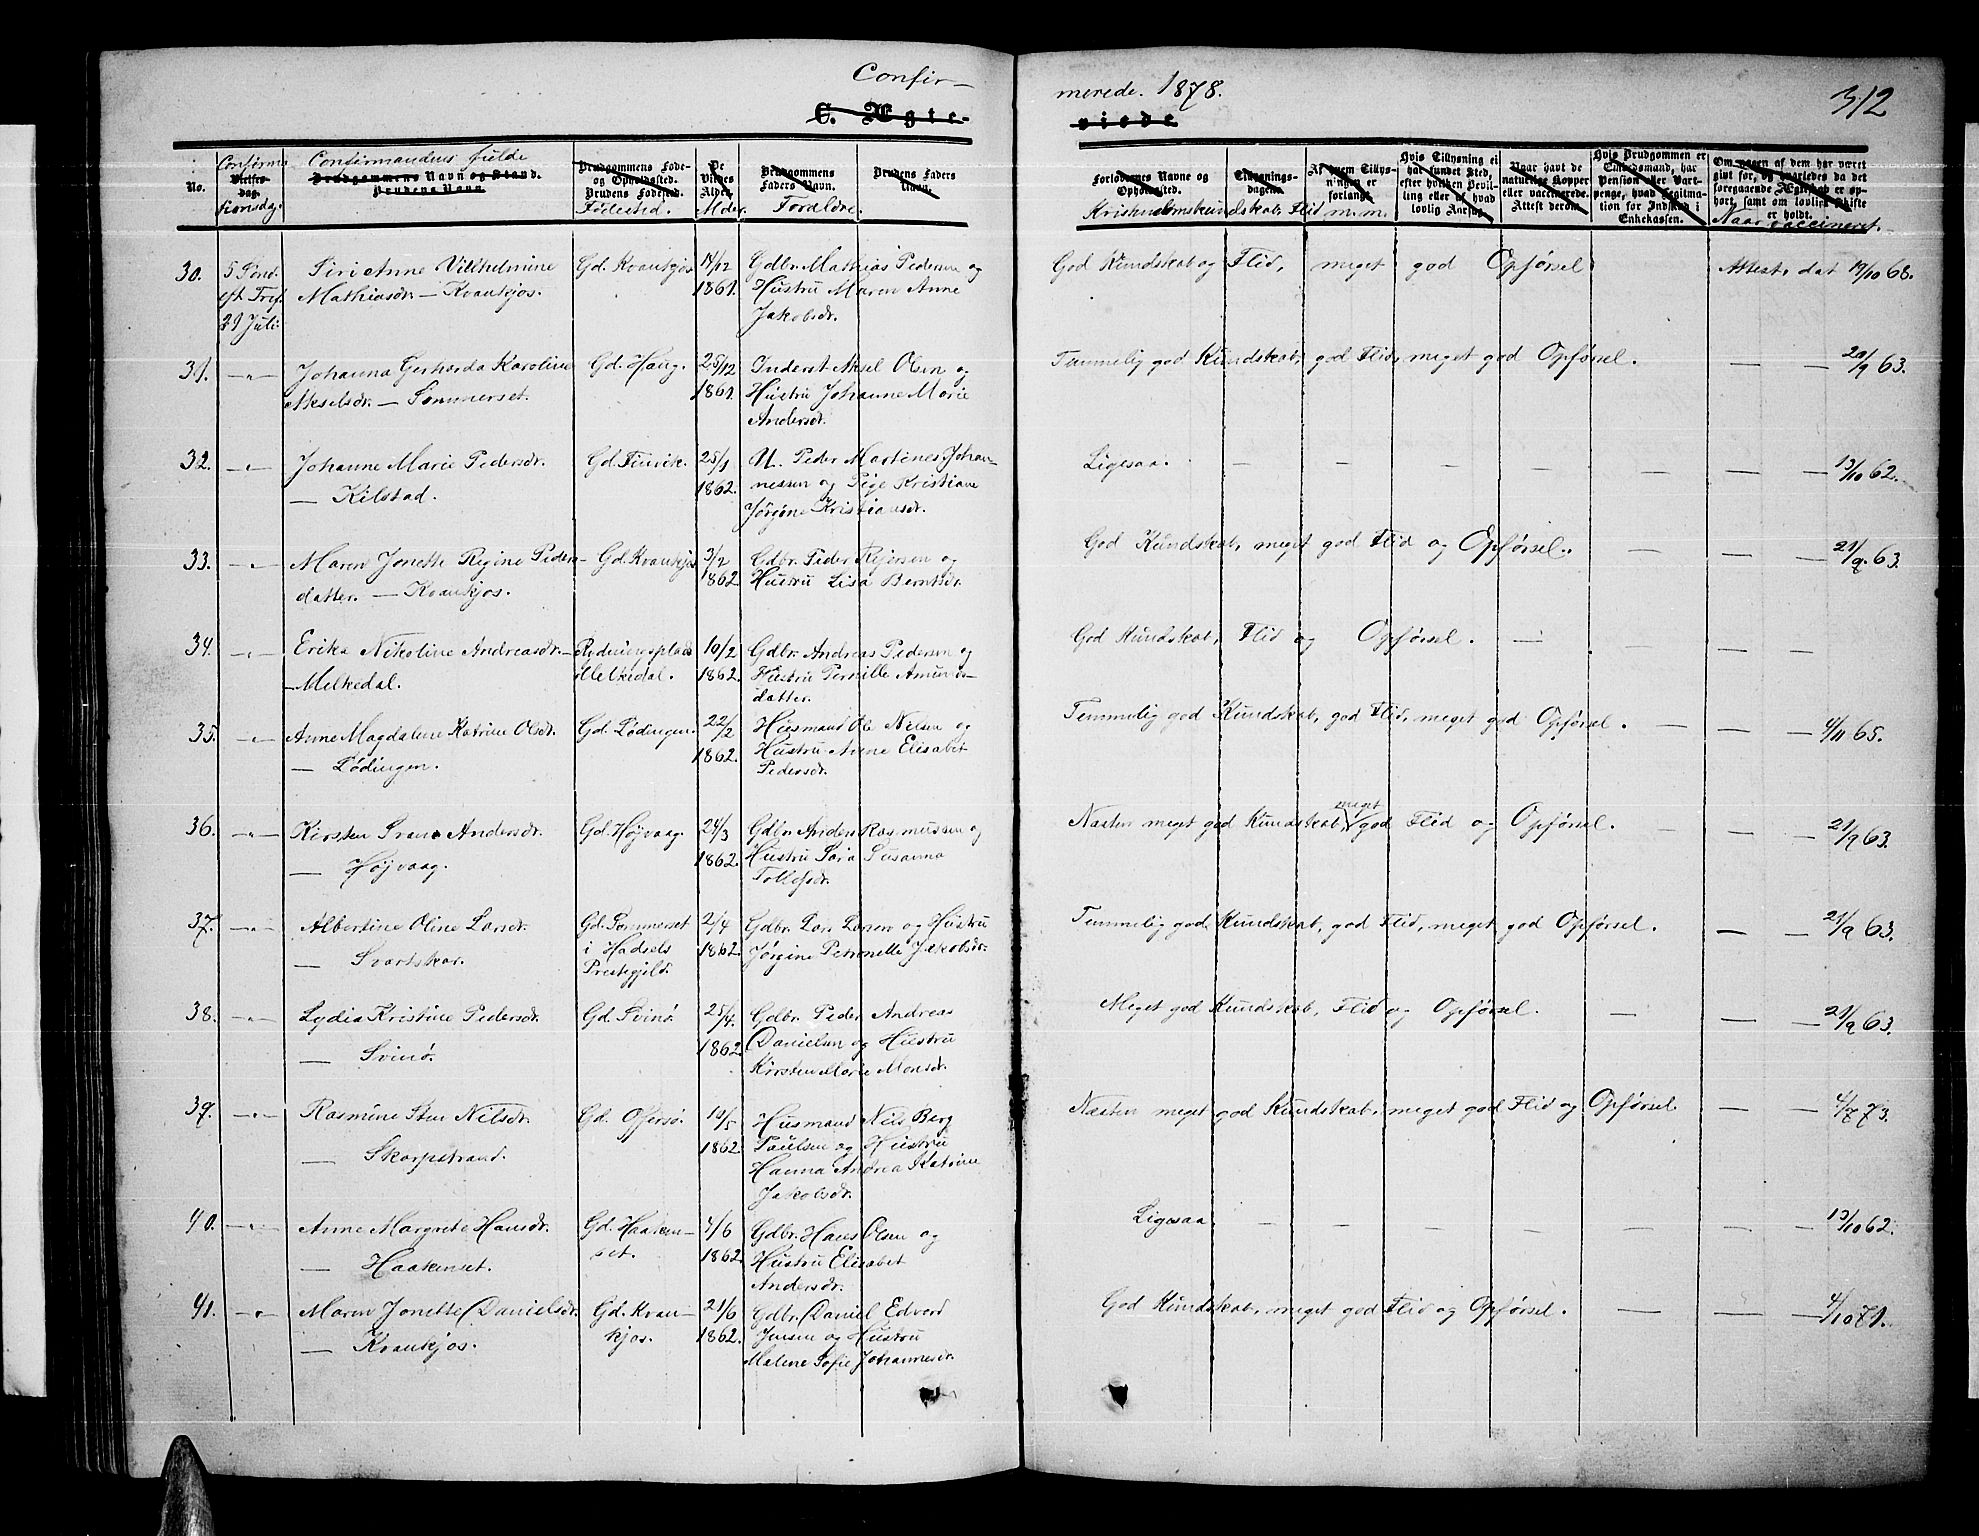 Confir-
merede. 1878.
312
C. Ægte-
viede
No.
Confirma
Vielses-
dag.
tionsdag.
Confirmandens fulde
Brudgommens Navn og Stand.
Brudens Navn.
Brudgommens Føde-
og Opholdssted.
Brudens Fødested.
Fødested.
De
Vies
Alder
Alder.
Brudgommens
Faders Navn.
Forældre.
Brudens Faders
Navn.
Forloverens Navne og
Opholdssted.
Kristendomskundskab, Flid m.m.
Tillysnings-
dagene.
Af hvem Tillys-
ningen er
forlangt.
Hvis Tillysning ei
har fundet Sted,
efter hvilken Bevil-
ling eller af hvad
lovlig Aarsag.
Naar havt de
naturlige Kopper
eller vaccinerede.
Attest derom.
Hvis Brudgommen er
Enkedsmand, har
Pension eller Vart-
penge, hvad Legitima-
tion for Indskud i
Enkekassen.
Om nogen af dem har været
gift for, og hvorledes da det
foregaaende Ægteskab er op-
hørt, samt om lovligt Skifte
er holdt.
Naar vaccineret.
30. 5 Sönd. Siri Anne Vilhelmine Gd. Kvankjos 14/12 Gdbr. Mathias Pedersen og God Kundskab og Flid, meget god Opførsel Attest. dat 19/10 68.
eft Tref. Mathiasdr. — Kvankjos. 1861 Hustru Maren Anne
21 Juli Jakobsdr.
31. —„— Johanna Gerharda Karoline Gd. Haug. 25/12 Inderst Aksel Olsen og Temmelig god Kundskab, god Flid, meget god Opførsel. — — 20/9 63.
Akselsdr. — Sommerset. 1861. Hustru Johanne Marie
Andersdr.
32. —„— Johanne Marie Pedersdr. Gd. 25/1 U. Peder Martines Johan- Ligesaa. — — — — — — — 13/10 62.
— Kilstad. 1862. nessen og Pige Kristiane
Jørgine Kristiansdr.
33. —„— Maren Jonette Regine Peders- Gd. Kvankjos 3/2 Gdbr. Peder Rejersen og God Kundskab, meget god Flid og Opførsel. — — — 21/9 63.
datter. — Kvankjos. 1862 Hustru Lisa Berntsdr.
34. —„— Erika Nikoline Andreasdr. Rydningsplads 10/2 Gdbr. Andreas Pedersen og God Kundskab, Flid og Opførsel. — — — —
— Melkedal. Melkedal. 1862. Hustru Pernille Amunds-
datter.
35. —„— Anne Magdalene Katrine Olsdr. Gd. Lødingen. 22/2 Husmand Ole Nilsen og Temmelig god Kundskab, god Flid, meget god Opførsel. — — — 4/11 65.
— Lødingen. 1862. Hustru Anne Elisabet
Pedersdr.
36. —„— Kirsten Andersdr. Gd. Højvaag. 24/3 Gdbr. Anders Rasmussen og meget
Næsten meget god Kundskab, god Flid og Opførsel. — — — 21/9 63.
— Højvaag. 1862. Hustru Sara Susanna
Tollefsdr.
37. —„— Albertine Oline Larsdr. Gd. Sommerset 2/4 Gdbr. Lars Larsen og Hustru Temmelig god Kundskab, god Flid, meget god Opførsel. — — 21/9 63.
— Svartskar. i Hadsels 1862. Jørgine Petronelle Jakobsdr.
Prestegjeld.
38. —„— Lydia Kristine Pedersdr. Gd. Svinø. 25/4. Gdbr. Peder Andreas Meget god Kundskab, Flid og Opførsel. — — — 21/9 63.
— Svinø. 1862 Danielsen og Hustru
Kirsten Marie Monsdr.
39. —„— Rasmine Sten Nilsdr. Gd. Offersø. 10/5 Husmand Nils Berg Næsten meget god Kundskab, meget god Flid og Opførsel. — — 4/7 73.
— Skarpstrand. 1862. Paulsen og Hustru
Hanna Andrea Katrine
Jakobsdr.
40. —„— Anne Margrete Hansdr. Gd. Haaken- 4/6 Gdbr. Hans Olsen og Ligesaa — — — — — — — 13/10 62.
— Haakenset. set. 1862. Hustru Elisabet
Andersdr.
41. —„— Maren Jonette Danielsdr. Gd. Kvan- 21/6 Gdbr. Daniel Edvard God Kundskab, meget god Flid og Opførsel. — — — 4/10 71.
— Kvankjos. kjos. 1862. Jensen og Hustru
Malene Sofie Johannesdr.